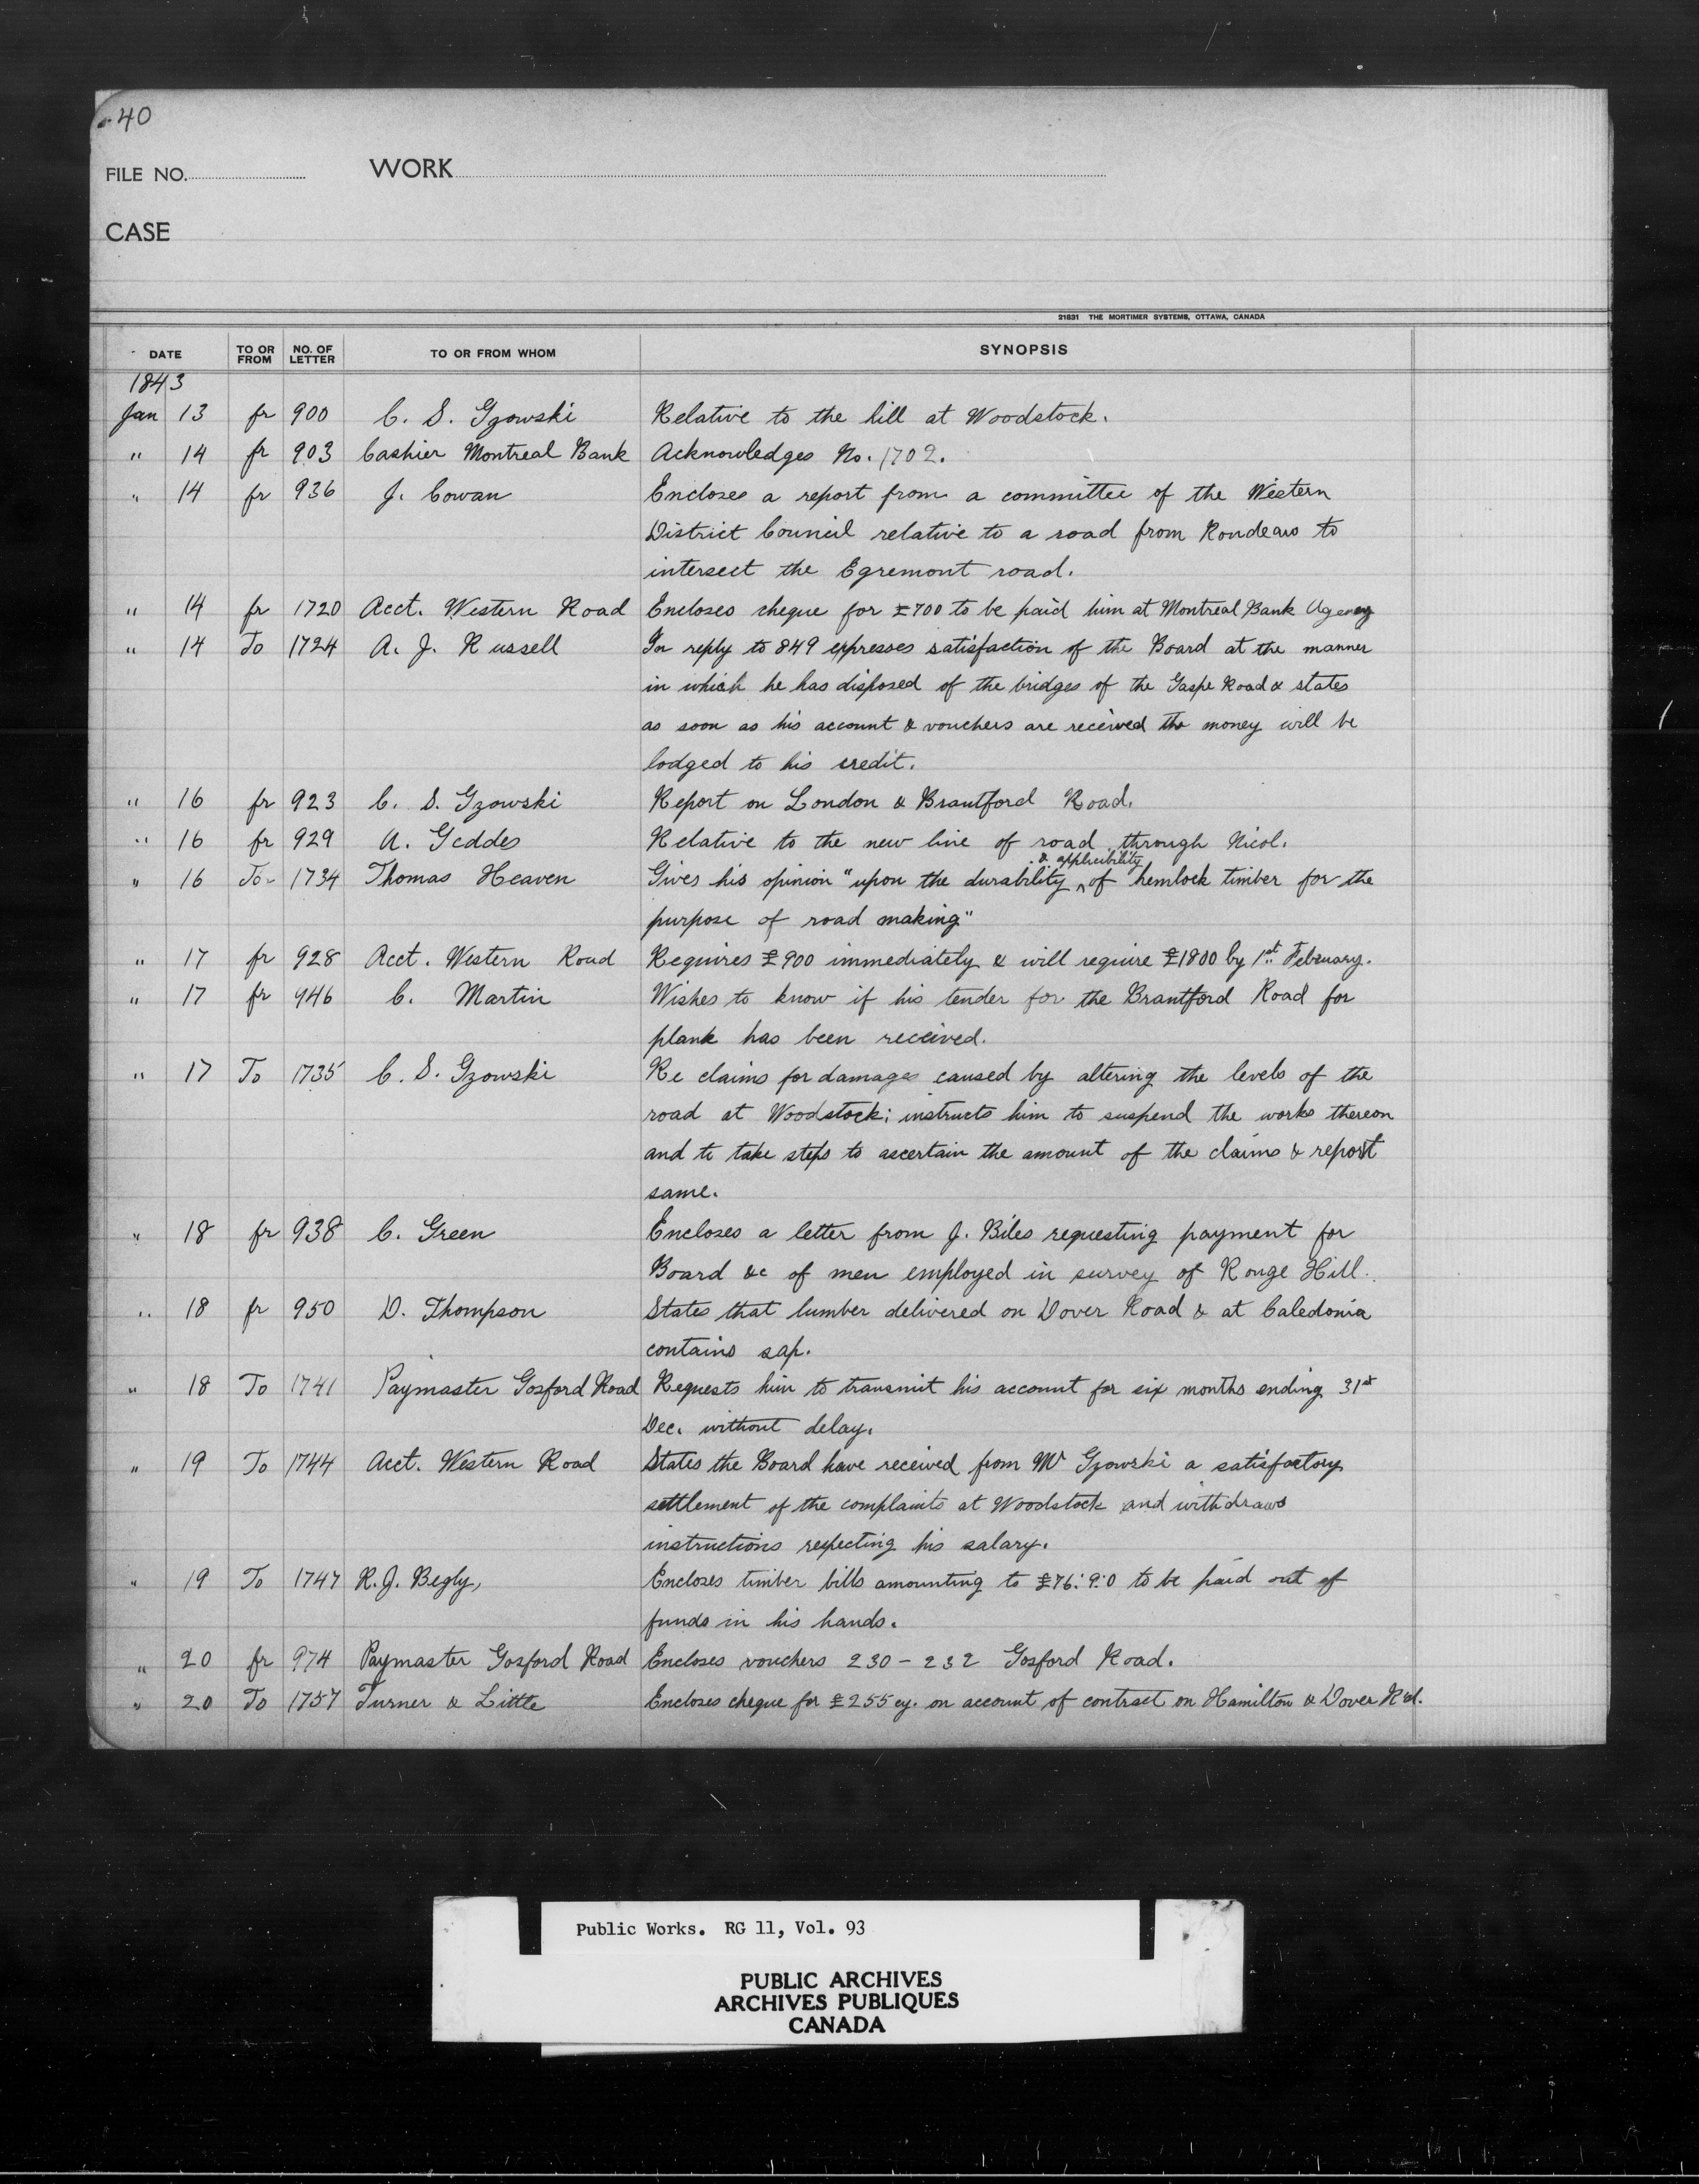 40
FILE NO. WORK
CASE
21831 THE MORTIMER SYSTEMS, OTTAWA, CANADA
DATE TO OR FROM NO. OF LETTER TO OR FROM WHOM SYNOPSIS
1843
Jan 13 fr 900 C. S. Gzowski Relative to the hill at Woodstock.
" 14 fr 903 Cashier Montreal Bank Acknowledges No. 1702.
" 14 fr 936 J. Cowan Encloses a report from a committee of the Western
District Council relative to a road from Rondeau to
intersect the Egremont road.
" 14 fr 1720 Acct. Western Road Encloses cheque for £700 to be paid him at Montreal Bank Agency
" 14 To 1724 A. J. Russell In reply to 849 expresses satisfaction of the Board at the manner
in which he has disposed of the bridges of the Gaspe Road & states
as soon as his account & vouchers are received the money will be
lodged to his credit.
" 16 fr 923 C. S. Gzowski Report on London & Brantford Road.
" 16 fr 929 A. Geddes Relative to the new line of road through Nicol.
" 16 To 1734 Thomas Heaven Gives his opinion "upon the durability & applicibility of hemlock timber for the
purpose of road making"
" 17 fr 928 Acct. Western Road Requires £900 immediately & will require £1800 by 1st February.
" 17 fr 946 C. Martin Wishes to know if his tender for the Brantford Road for
plank has been received.
" 17 To 1735 C. S. Gzowski Re claims for damages caused by altering the levels of the
road at Woodstock; instructs him to suspend the works thereon
and to take steps to ascertain the amount of the claims & report
same.
" 18 fr 938 C. Green Encloses a letter from J. Biles requesting payment for
Board &c of men employed in survey of Rouge Hill.
" 18 fr 950 D. Thompson States that lumber delivered on Dover Road & at Caledonia
contains sap.
" 18 To 1741 Paymaster Gosford Road Requests him to transmit his account for six months ending 31st
Dec. without delay.
" 19 To 1744 Acct. Western Road States the Board have received from Mr Gzowski a satisfactory
settlement of the complaints at Woodstock and withdraws
instructions respecting his salary.
" 19 To 1747 R. J. Begly, Encloses timber bills amounting to £76:9:0 to be paid out of
funds in his hands.
" 20 fr 974 Paymaster Gosford Road Encloses vouchers 230 - 232 Gosford Road.
" 20 To 1757 Turner & Little Encloses cheque for £255 cy. on account of contract on Hamilton & Dover R'd.
Public Works. RG 11, Vol. 93
PUBLIC ARCHIVES
ARCHIVES PUBLIQUES
CANADA